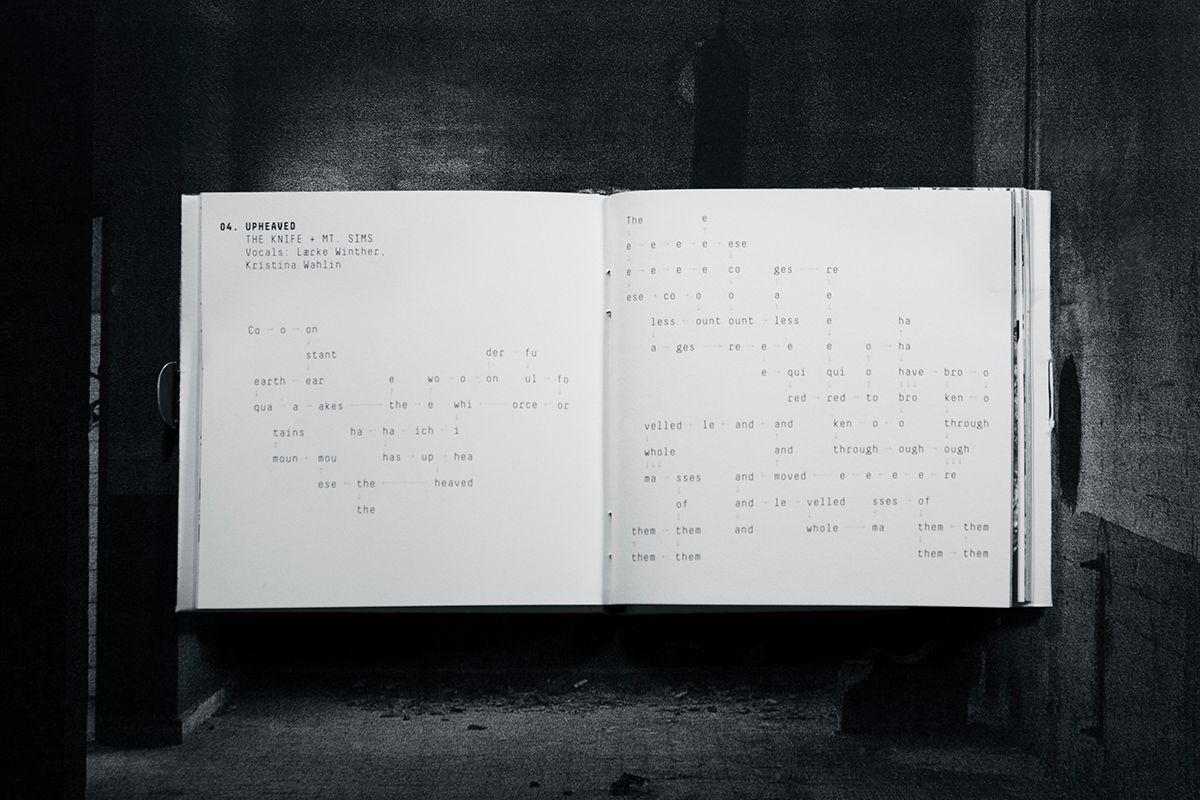 04. UPHEAVED
THE KNIFE + MT. SIMS
Vocals: Lærke Winther,
Kristina Wahlin
Co o on
stant
der fu
earth ear e wo o on ul fo
qua a akes the e whi orce or
tains ha ha ich i
moun mou has up hea
ese the heaved
the
The e
e e e e ese
e e e e co ges re
ese co o o a e
less ount ount less e ha
a ges re e e e o ha
e qui qui o have bro o
red red to bro ken o
velled le and and ken o o through
whole and through ough ough
ma sses and moved e e e e re
of and le velled sses of
them them and whole ma them them
them them them them